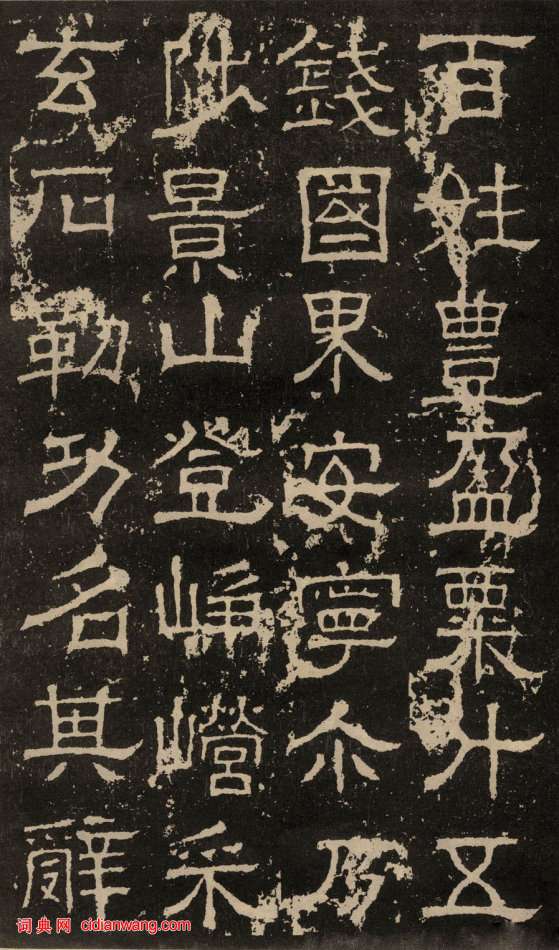 百姓豊盈粟升五
錢國界安寧尒乃
陟景山登崢巆采
玄石勒功名其辭
词典网 cidianwang.com